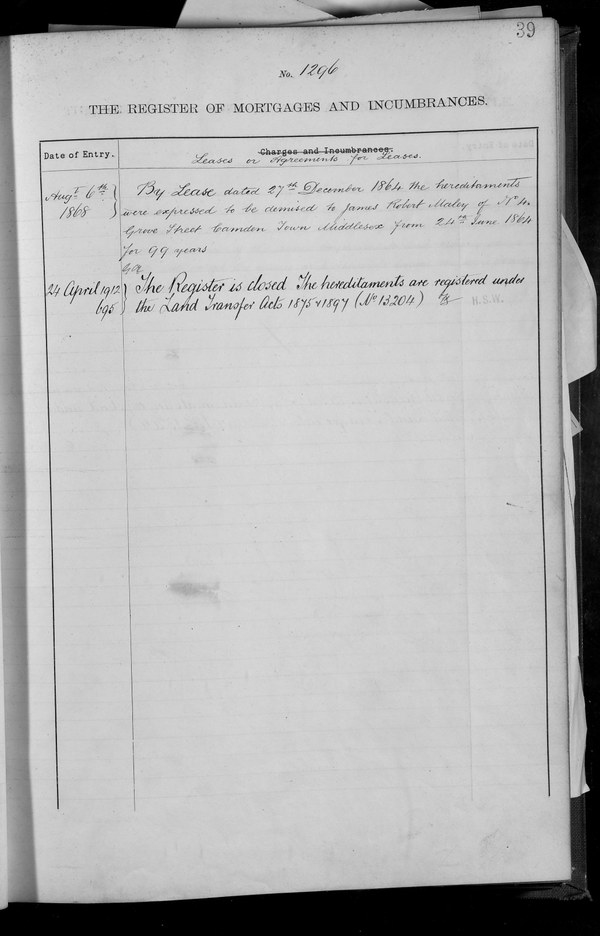 39
No. 1296
THE REGISTER OF MORTGAGES AND INCUMBRANCES.
Date of Entry.
Charges and Incumbrances.
Leases or Agreements for Leases.
Augt 6th 1868
By Lease dated 27th December 1864 the hereditaments
were expressed to be demised to James Robert Maley of No 4
Grove Street Camden Town Middlesex from 24th June 1864
for 99 years
24 April 1912
695
The Register is closed The hereditaments are registered under
the Land Transfer Acts 1875 & 1897 (No 13204)